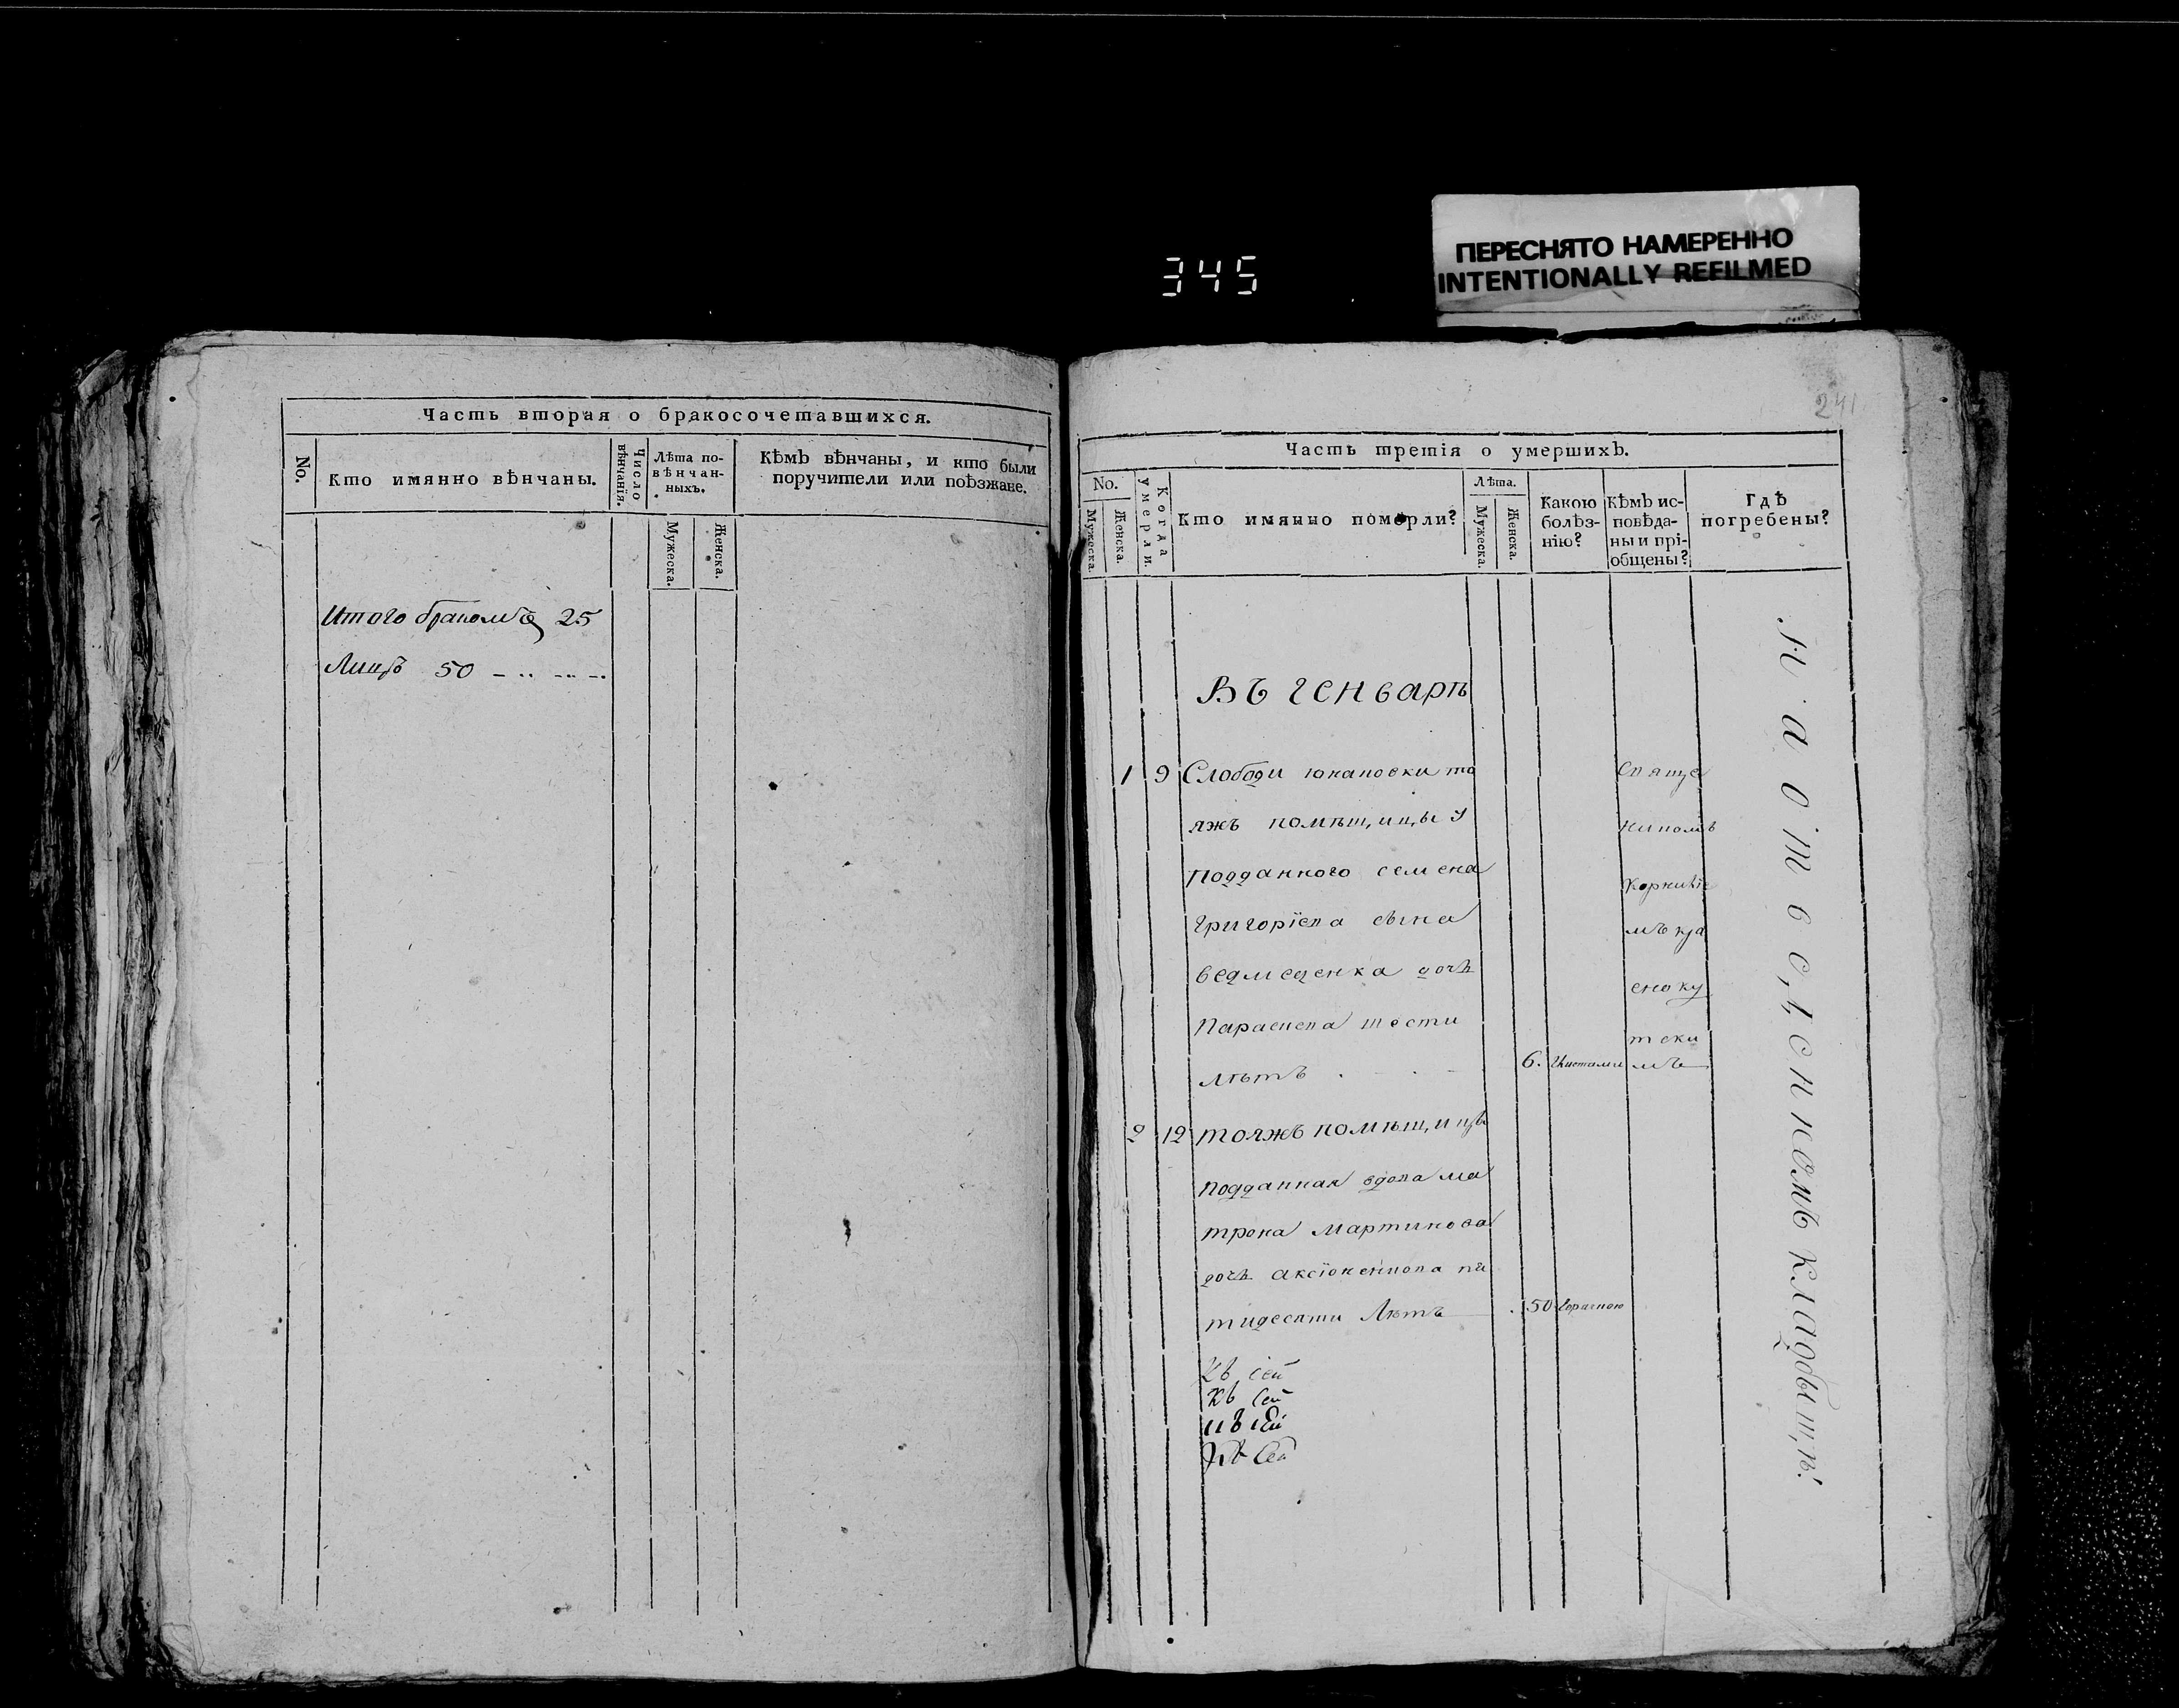 ПЕРЕСНЯТО НАМЕРЕННО
INTENTIONALLY REFILMED
345
Часть вторая о бракосочетавшихся.
No.
Кто имянно вѣнчаны.
Число вѣнчанїя.
Лѣта повѣнчанныхъ.
Мужеска.
Женска.
Кѣмъ вѣнчаны, и кто были
поручители или поѣзжане.
Итого браковъ 25
Лицъ 50
241
Часть третія о умершихъ.
No.
Мужеска.
Женска.
Когда умерли.
Кто имянно померли?
Лѣта.
Мужеска.
Женска.
Какою
болѣз-
нію?
Кѣмъ ис-
повѣда-
ны и прі-
общены?
Гдѣ
погребены?
Въ генварѣ
1 9 Слободи юнаковки то Свяще
яжъ помѣщицы
подданного семена
григорїева сина мъ кра
ведмеденка дочь сноку
Параскева шести тски
лѣтъ 6. мъ
2 12 тояжъ помѣщицы
подданная вдова ма
трона мартинова
дочь пя
тидесяти Лѣтъ 50 Горячкою
Къ сей
Къ сей
Къ сей
кладбыщѣ